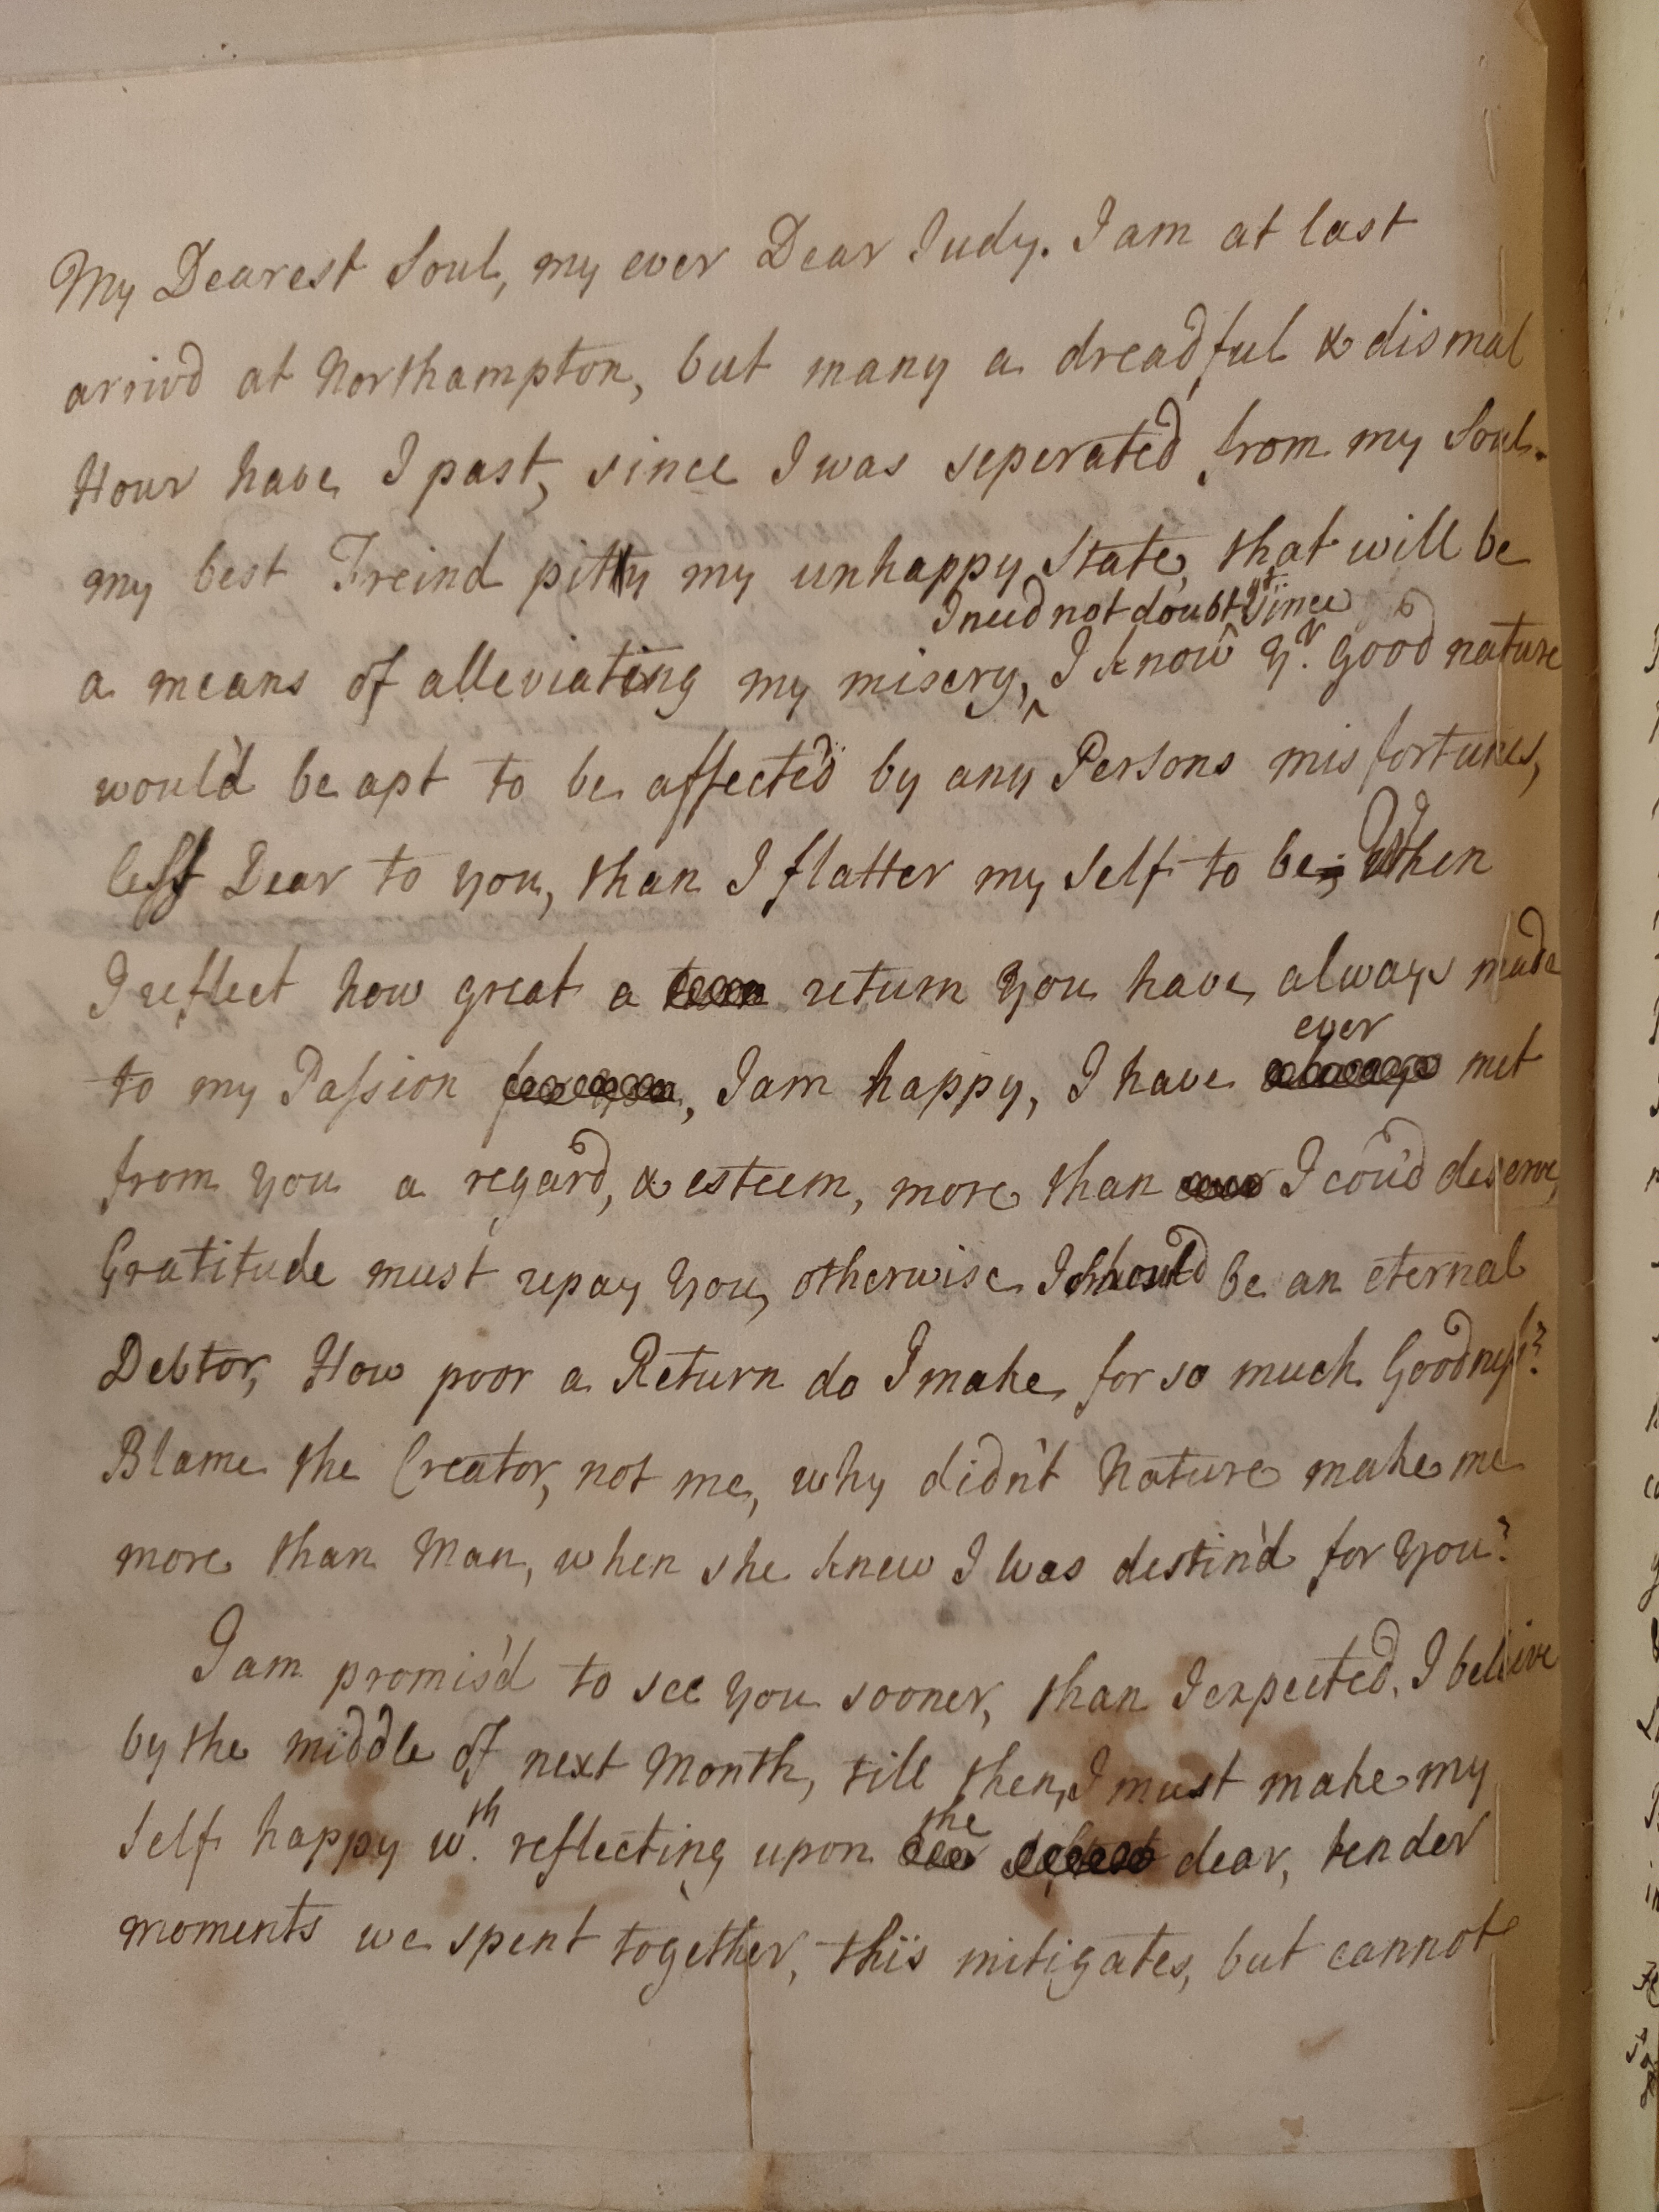 My Dearest Soul, my ever Dear Judy. I am at last
arriv'd at Northampton, but many a dreadful & dismal
Hour have I past, since I was seperated from my Soul.
my best Freind pitty my unhappy State, that will be
a means of alleviating my misery, I need not doubt yt. since I know yr. good nature
would be apt to be affected by any Persons misfortunes,
less Dear to you, than I flatter my self to be; When
I reflect how great a return you have always made
to my Passion, I am happy, I have ever met
from you a regard, & esteem, more than I cou'd deserve,
Gratitude must repay you, otherwise I should be an eternal
Debtor, How poor a Return do I make for so much Goodness?
Blame the Creator, not me, why didn't Nature make me
more than Man, when she knew I was destin'd for you?
I am promis'd to see you sooner, than I expected, I beleive
by the middle of next Month, till then, I must make my
self happy wth. reflecting upon the dear, tender
moments we spent together, this mitigates, but cannot